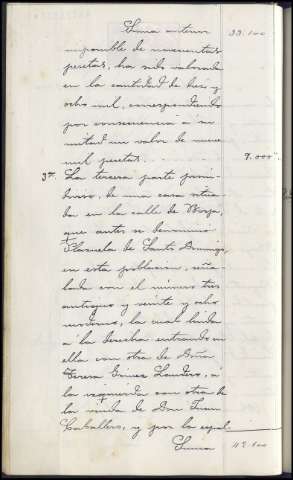 Suma anterior 33.100
imponible de novecientas
pesetas, ha sido valorada
en la cantidad de diez y
ocho mil, correspondiendo
por consecuencia á su
mitad un valor de nueve
mil pesetas. 9.000"
3ª. La tercera parte proin-
divisa, de una casa situa-
da en la calle de Borja,
que antes se denominó
Plazuela de Santo Domingo,
en esta población, seña-
lada con el número tres
antiguo y veinte y ocho
moderno, la cual linda
á la derecha entrando en
ella con otra de Doña
Teresa Gomez Landero, á
la izquierda con otra de
la viuda de Don Juan
Caballero, y por la espal
Suma 42.100